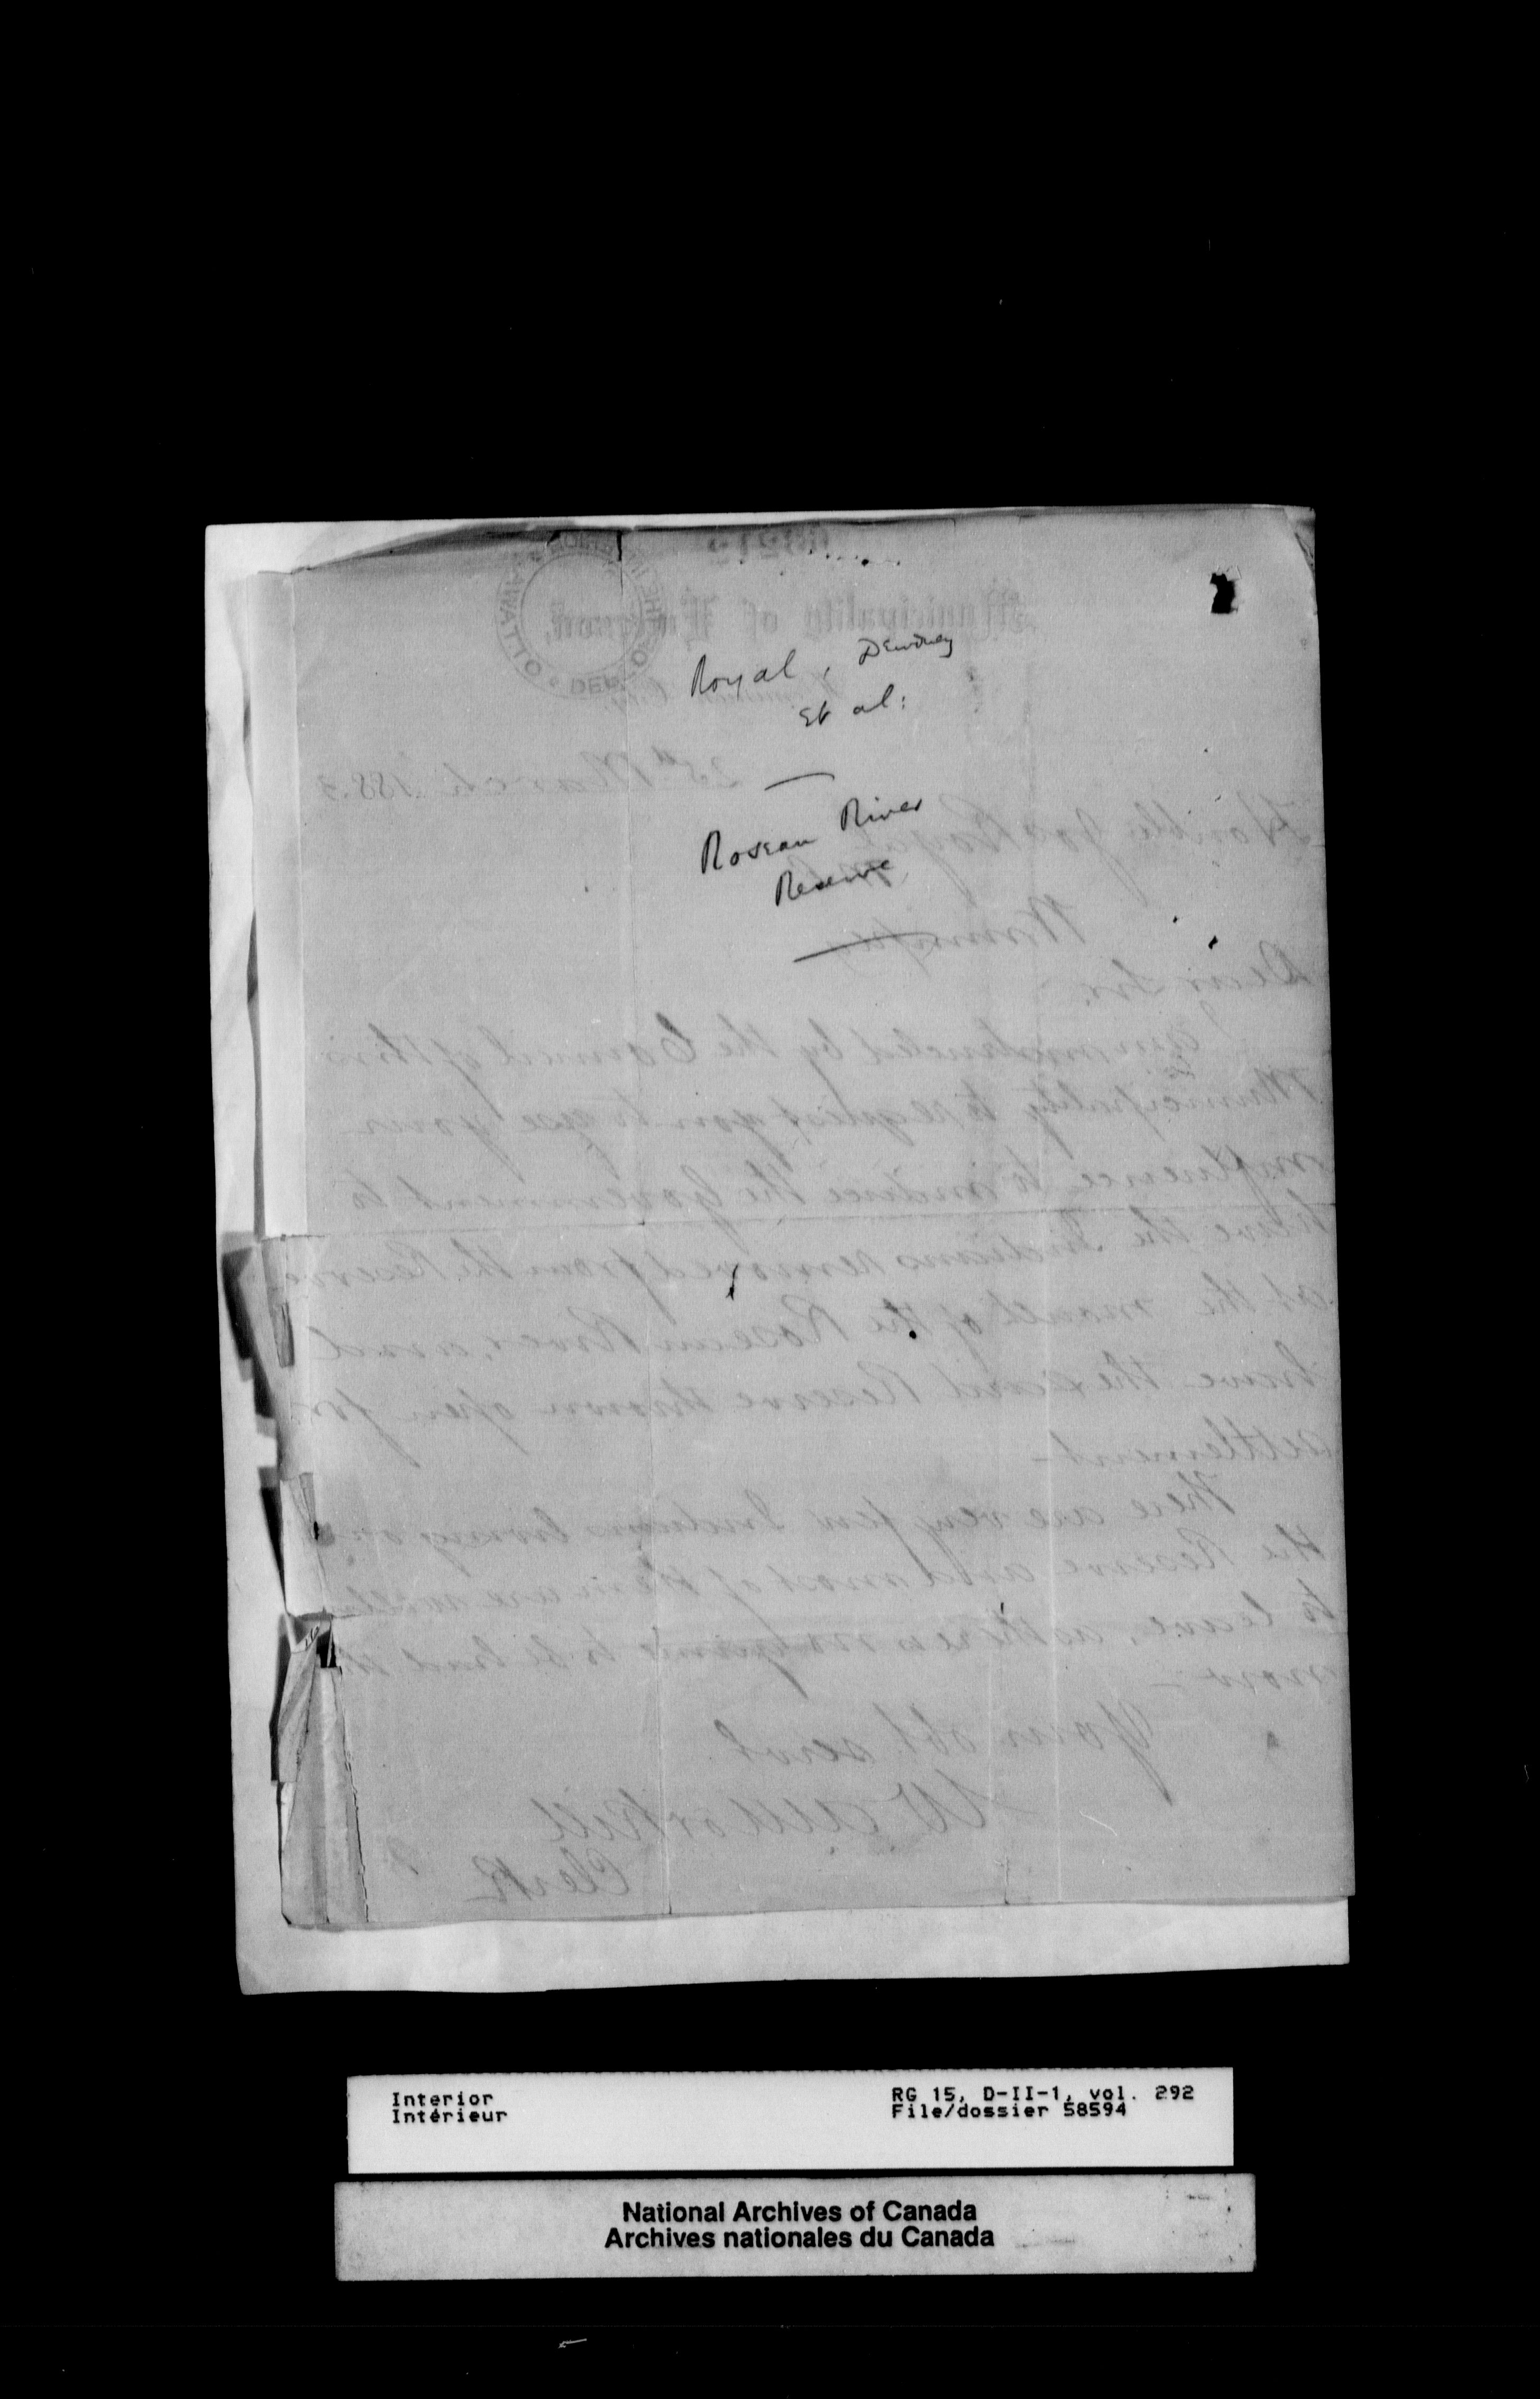 Royal, Dewdney
et al:
Roseau River
Reserve
Municipality of Emerson,
DEP
OTTAWA
25th March 1883
Honble Jos Royal
Winnipeg
Dear Sir,
I am instructed by the Council of this
Municipality to request you to use your
influence to induce the Government to
have the Indians removed from the Reserve
at the mouth of the Roseau River, and
have the said Reserve thrown open for
settlement -
There are very few Indians living on
the Reserve and most of them are willing
to leave, as there is no game to be had
now -
Your obt servt
Clerk
Interior
Intérieur
RG 15, D-II-1, vol. 292
File/dossier 58594
National Archives of Canada
Archives nationales du Canada